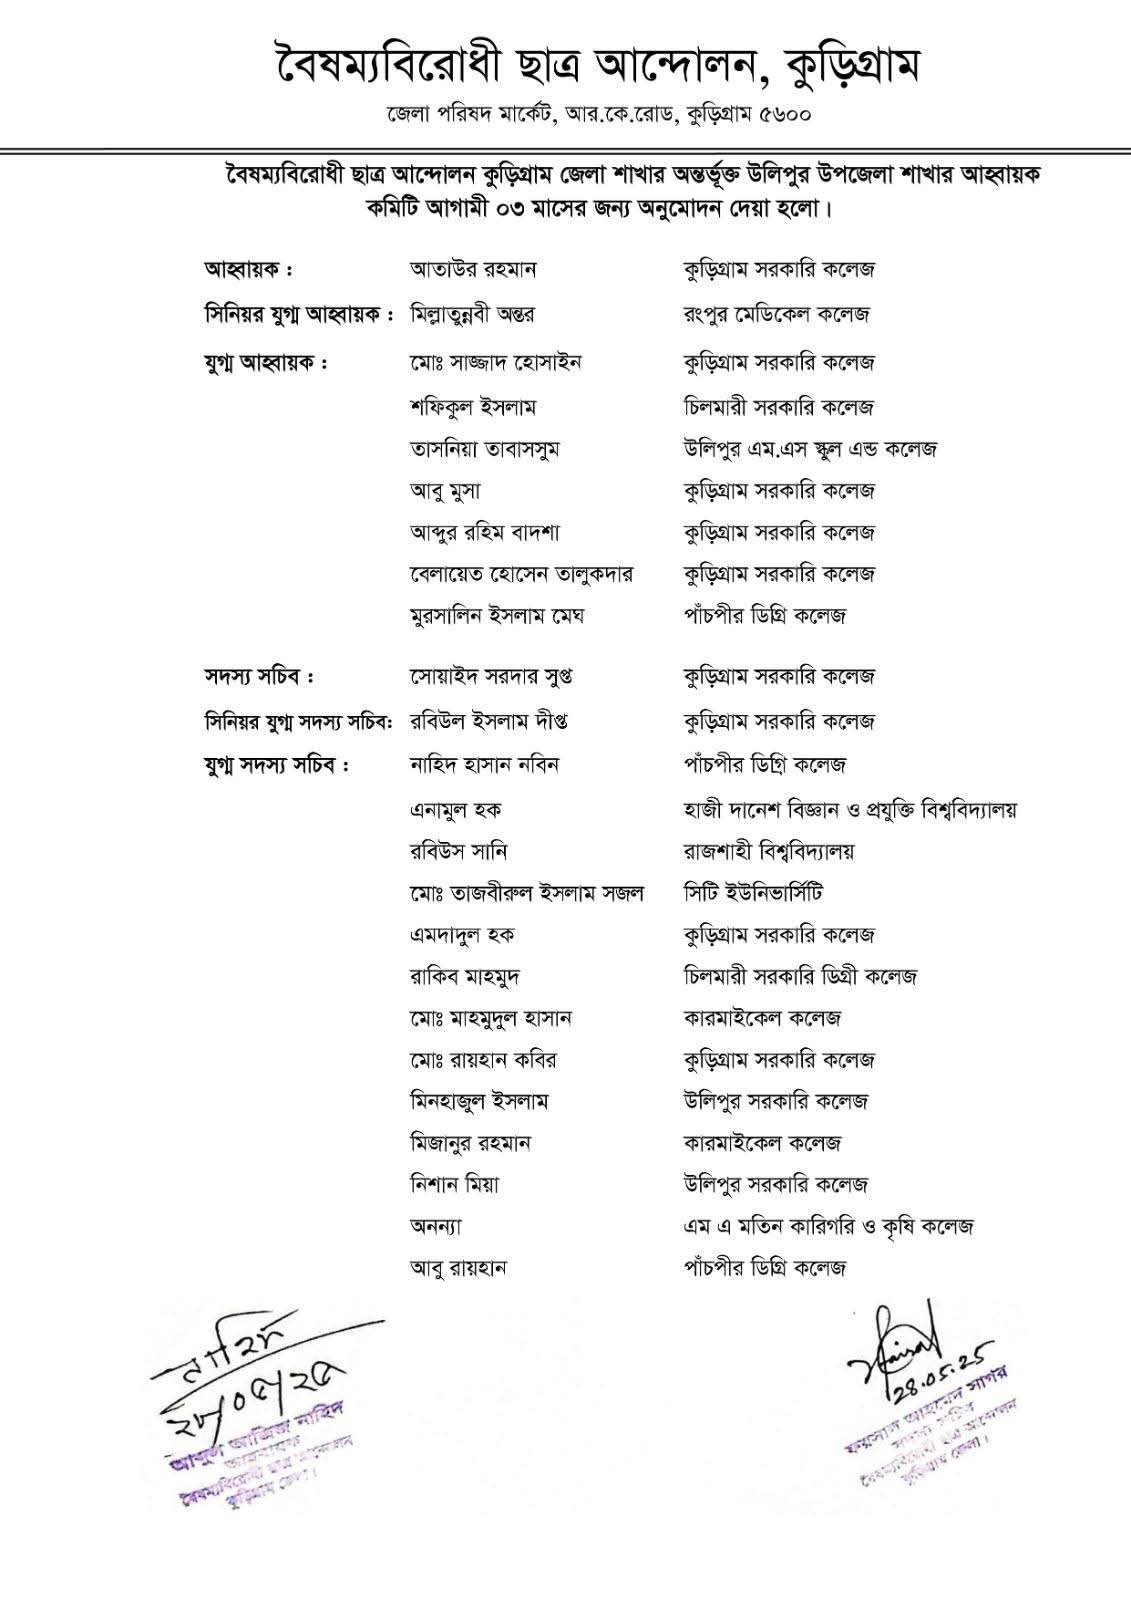 বৈষম্যবিরোধী ছাত্র আন্দোলন, কুড়িগ্রাম
জেলা পরিষদ মার্কেট, আর.কে.রোড, কুড়িগ্রাম ৫৬০০
বৈষম্যবিরোধী ছাত্র আন্দোলন কুড়িগ্রাম জেলা শাখার অন্তর্ভূক্ত উলিপুর উপজেলা শাখার আহ্বায়ক
কমিটি আগামী ০৩ মাসের জন্য অনুমোদন দেয়া হলো।
আহ্বায়ক : আতাউর রহমান কুড়িগ্রাম সরকারি কলেজ
সিনিয়র যুগ্ম আহ্বায়ক : মিল্লাতুন্নবী অন্তর রংপুর মেডিকেল কলেজ
যুগ্ম আহ্বায়ক : মোঃ সাজ্জাদ হোসাইন কুড়িগ্রাম সরকারি কলেজ
শফিকুল ইসলাম চিলমারী সরকারি কলেজ
তাসনিয়া তাবাসসুম উলিপুর এম.এস স্কুল এন্ড কলেজ
আবু মুসা কুড়িগ্রাম সরকারি কলেজ
আব্দুর রহিম বাদশা কুড়িগ্রাম সরকারি কলেজ
বেলায়েত হোসেন তালুকদার কুড়িগ্রাম সরকারি কলেজ
মুরসালিন ইসলাম মেঘ পাঁচপীর ডিগ্রি কলেজ
সদস্য সচিব : সোয়াইদ সরদার সুপ্ত কুড়িগ্রাম সরকারি কলেজ
সিনিয়র যুগ্ম সদস্য সচিব: রবিউল ইসলাম দীপ্ত কুড়িগ্রাম সরকারি কলেজ
যুগ্ম সদস্য সচিব : নাহিদ হাসান নবিন পাঁচপীর ডিগ্রি কলেজ
এনামুল হক হাজী দানেশ বিজ্ঞান ও প্রযুক্তি বিশ্ববিদ্যালয়
রবিউস সানি রাজশাহী বিশ্ববিদ্যালয়
মোঃ তাজবীরুল ইসলাম সজল সিটি ইউনিভার্সিটি
এমদাদুল হক কুড়িগ্রাম সরকারি কলেজ
রাকিব মাহমুদ চিলমারী সরকারি ডিগ্রী কলেজ
মোঃ মাহমুদুল হাসান কারমাইকেল কলেজ
মোঃ রায়হান কবির কুড়িগ্রাম সরকারি কলেজ
মিনহাজুল ইসলাম উলিপুর সরকারি কলেজ
মিজানুর রহমান কারমাইকেল কলেজ
নিশান মিয়া উলিপুর সরকারি কলেজ
অনন্যা এম এ মতিন কারিগরি ও কৃষি কলেজ
আবু রায়হান পাঁচপীর ডিগ্রি কলেজ
নাহিদ
২৮/০৫/২৫
আব্দুল আজিজ নাহিদ
আহবায়ক
বৈষম্যবিরোধী ছাত্র আন্দোলন
কুড়িগ্রাম জেলা।
Faisal
28.05.25
ফয়সাল আহমেদ সাগর
সদস্য সচিব
বৈষম্যবিরোধী ছাত্র আন্দোলন
কুড়িগ্রাম জেলা।